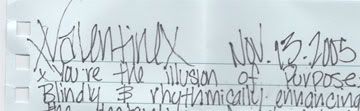 xValentinex Nov. 13. 2005
x You're the illusion of purpose
Blindly & rhythmically enhancing
the